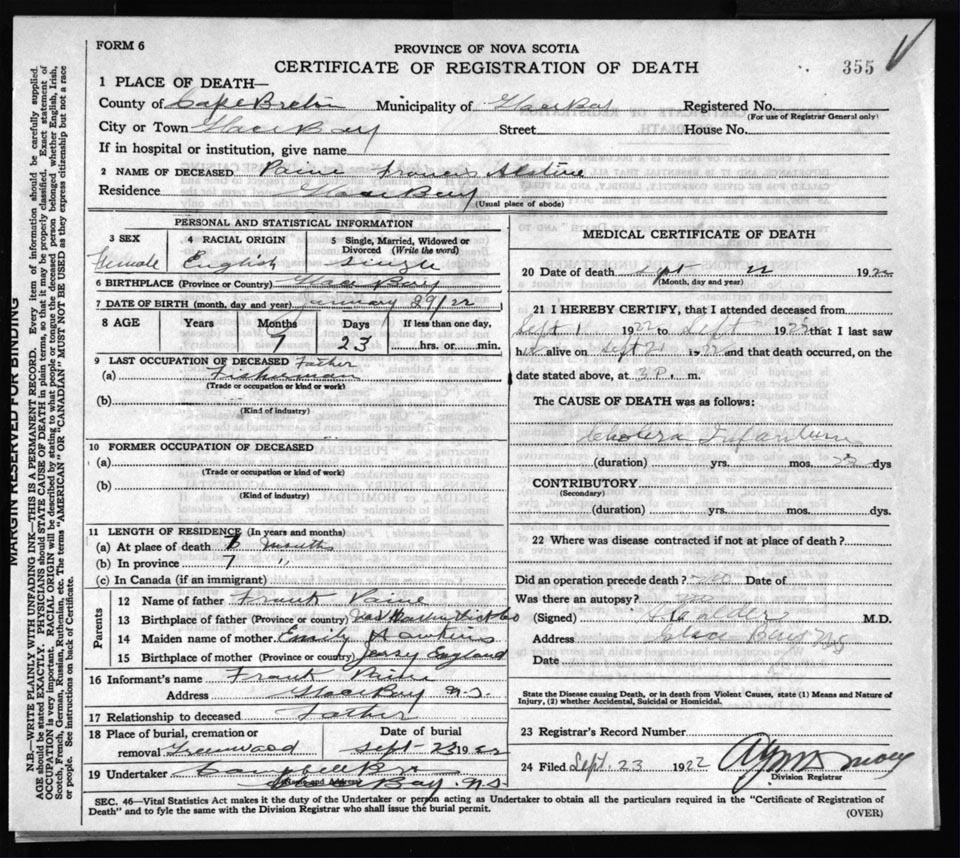 FORM 6
PROVINCE OF NOVA SCOTIA
CERTIFICATE OF REGISTRATION OF DEATH
355
1 PLACE OF DEATH—
County of Cape Breton Municipality of Glace Bay Registered No.
(For use of Registrar General only)
City or Town Glace Bay Street House No.
If in hospital or institution, give name
2 NAME OF DECEASED Paine Francis
Residence Glace Bay
(Usual place of abode)
PERSONAL AND STATISTICAL INFORMATION
3 SEX 4 RACIAL ORIGIN 5 Single, Married, Widowed or Divorced (Write the word)
Female English Single
6 BIRTHPLACE (Province or Country) Glace Bay
7 DATE OF BIRTH (month, day and year) January 29/22
8 AGE Years Months Days If less than one day,
7 23 hrs. or min.
9 LAST OCCUPATION OF DECEASED Father
(a) Fisherman
(Trade or occupation or kind of work)
(b)
(Kind of industry)
10 FORMER OCCUPATION OF DECEASED
(a)
(Trade or occupation or kind of work)
(b)
(Kind of industry)
11 LENGTH OF RESIDENCE (In years and months)
(a) At place of death months
(b) In province 7 "
(c) In Canada (if an immigrant)
Parents
12 Name of father Frank Paine
13 Birthplace of father (Province or country)
14 Maiden name of mother Emily Hawkins
15 Birthplace of mother (Province or country) Jersy England
16 Informant's name Frank Paine
Address Glace Bay N.S.
17 Relationship to deceased Father
18 Place of burial, cremation or removal Greenwood
Date of burial
Sept 23 1922
19 Undertaker
Bay N.S.
MEDICAL CERTIFICATE OF DEATH
20 Date of death Sept 22 1922
(Month, day and year)
21 I HEREBY CERTIFY, that I attended deceased from
Sept 1 1922 to Sept 1922 that I last saw
h alive on Sept 21 1922 and that death occurred, on the
date stated above, at 3 P. m.
The CAUSE OF DEATH was as follows:
Cholera Infantum
(duration) yrs. mos. 22 dys
CONTRIBUTORY
(Secondary)
(duration) yrs. mos. dys.
22 Where was disease contracted if not at place of death?
Did an operation precede death? no Date of
Was there an autopsy? no
(Signed) M.D.
Address Glace Bay N.S
Date
State the Disease causing Death, or in death from Violent Causes, state (1) Means and Nature of
Injury, (2) whether Accidental, Suicidal or Homicidal.
23 Registrar's Record Number
24 Filed Sept. 23 1922
Division Registrar
SEC. 46—Vital Statistics Act makes it the duty of the Undertaker or person acting as Undertaker to obtain all the particulars required in the "Certificate of Registration of
Death" and to fyle the same with the Division Registrar who shall issue the burial permit.
(OVER)
MARGIN RESERVED FOR BINDING
N.B.—WRITE PLAINLY WITH UNFADING INK—THIS IS A PERMANENT RECORD. Every item of information should be carefully supplied.
AGE should be stated EXACTLY. PHYSICIANS should STATE CAUSE OF DEATH in plain terms, so that it may be properly classified. Exact statement of
OCCUPATION is very important. RACIAL ORIGIN will be described by stating to what people or tongue the deceased person belonged whether English, Irish,
Scotch, French, German, Russian, Ruthenian, etc. The terms "AMERICAN" OR "CANADIAN" MUST NOT BE USED as they express citizenship but not a race
or people. See instructions on back of Certificate.